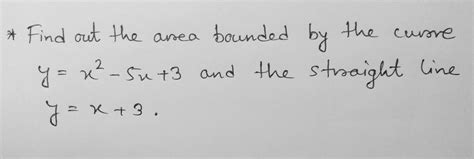 * Find out the area bounded by the curve
y = x² - 5x + 3 and the straight line
y = x + 3 .